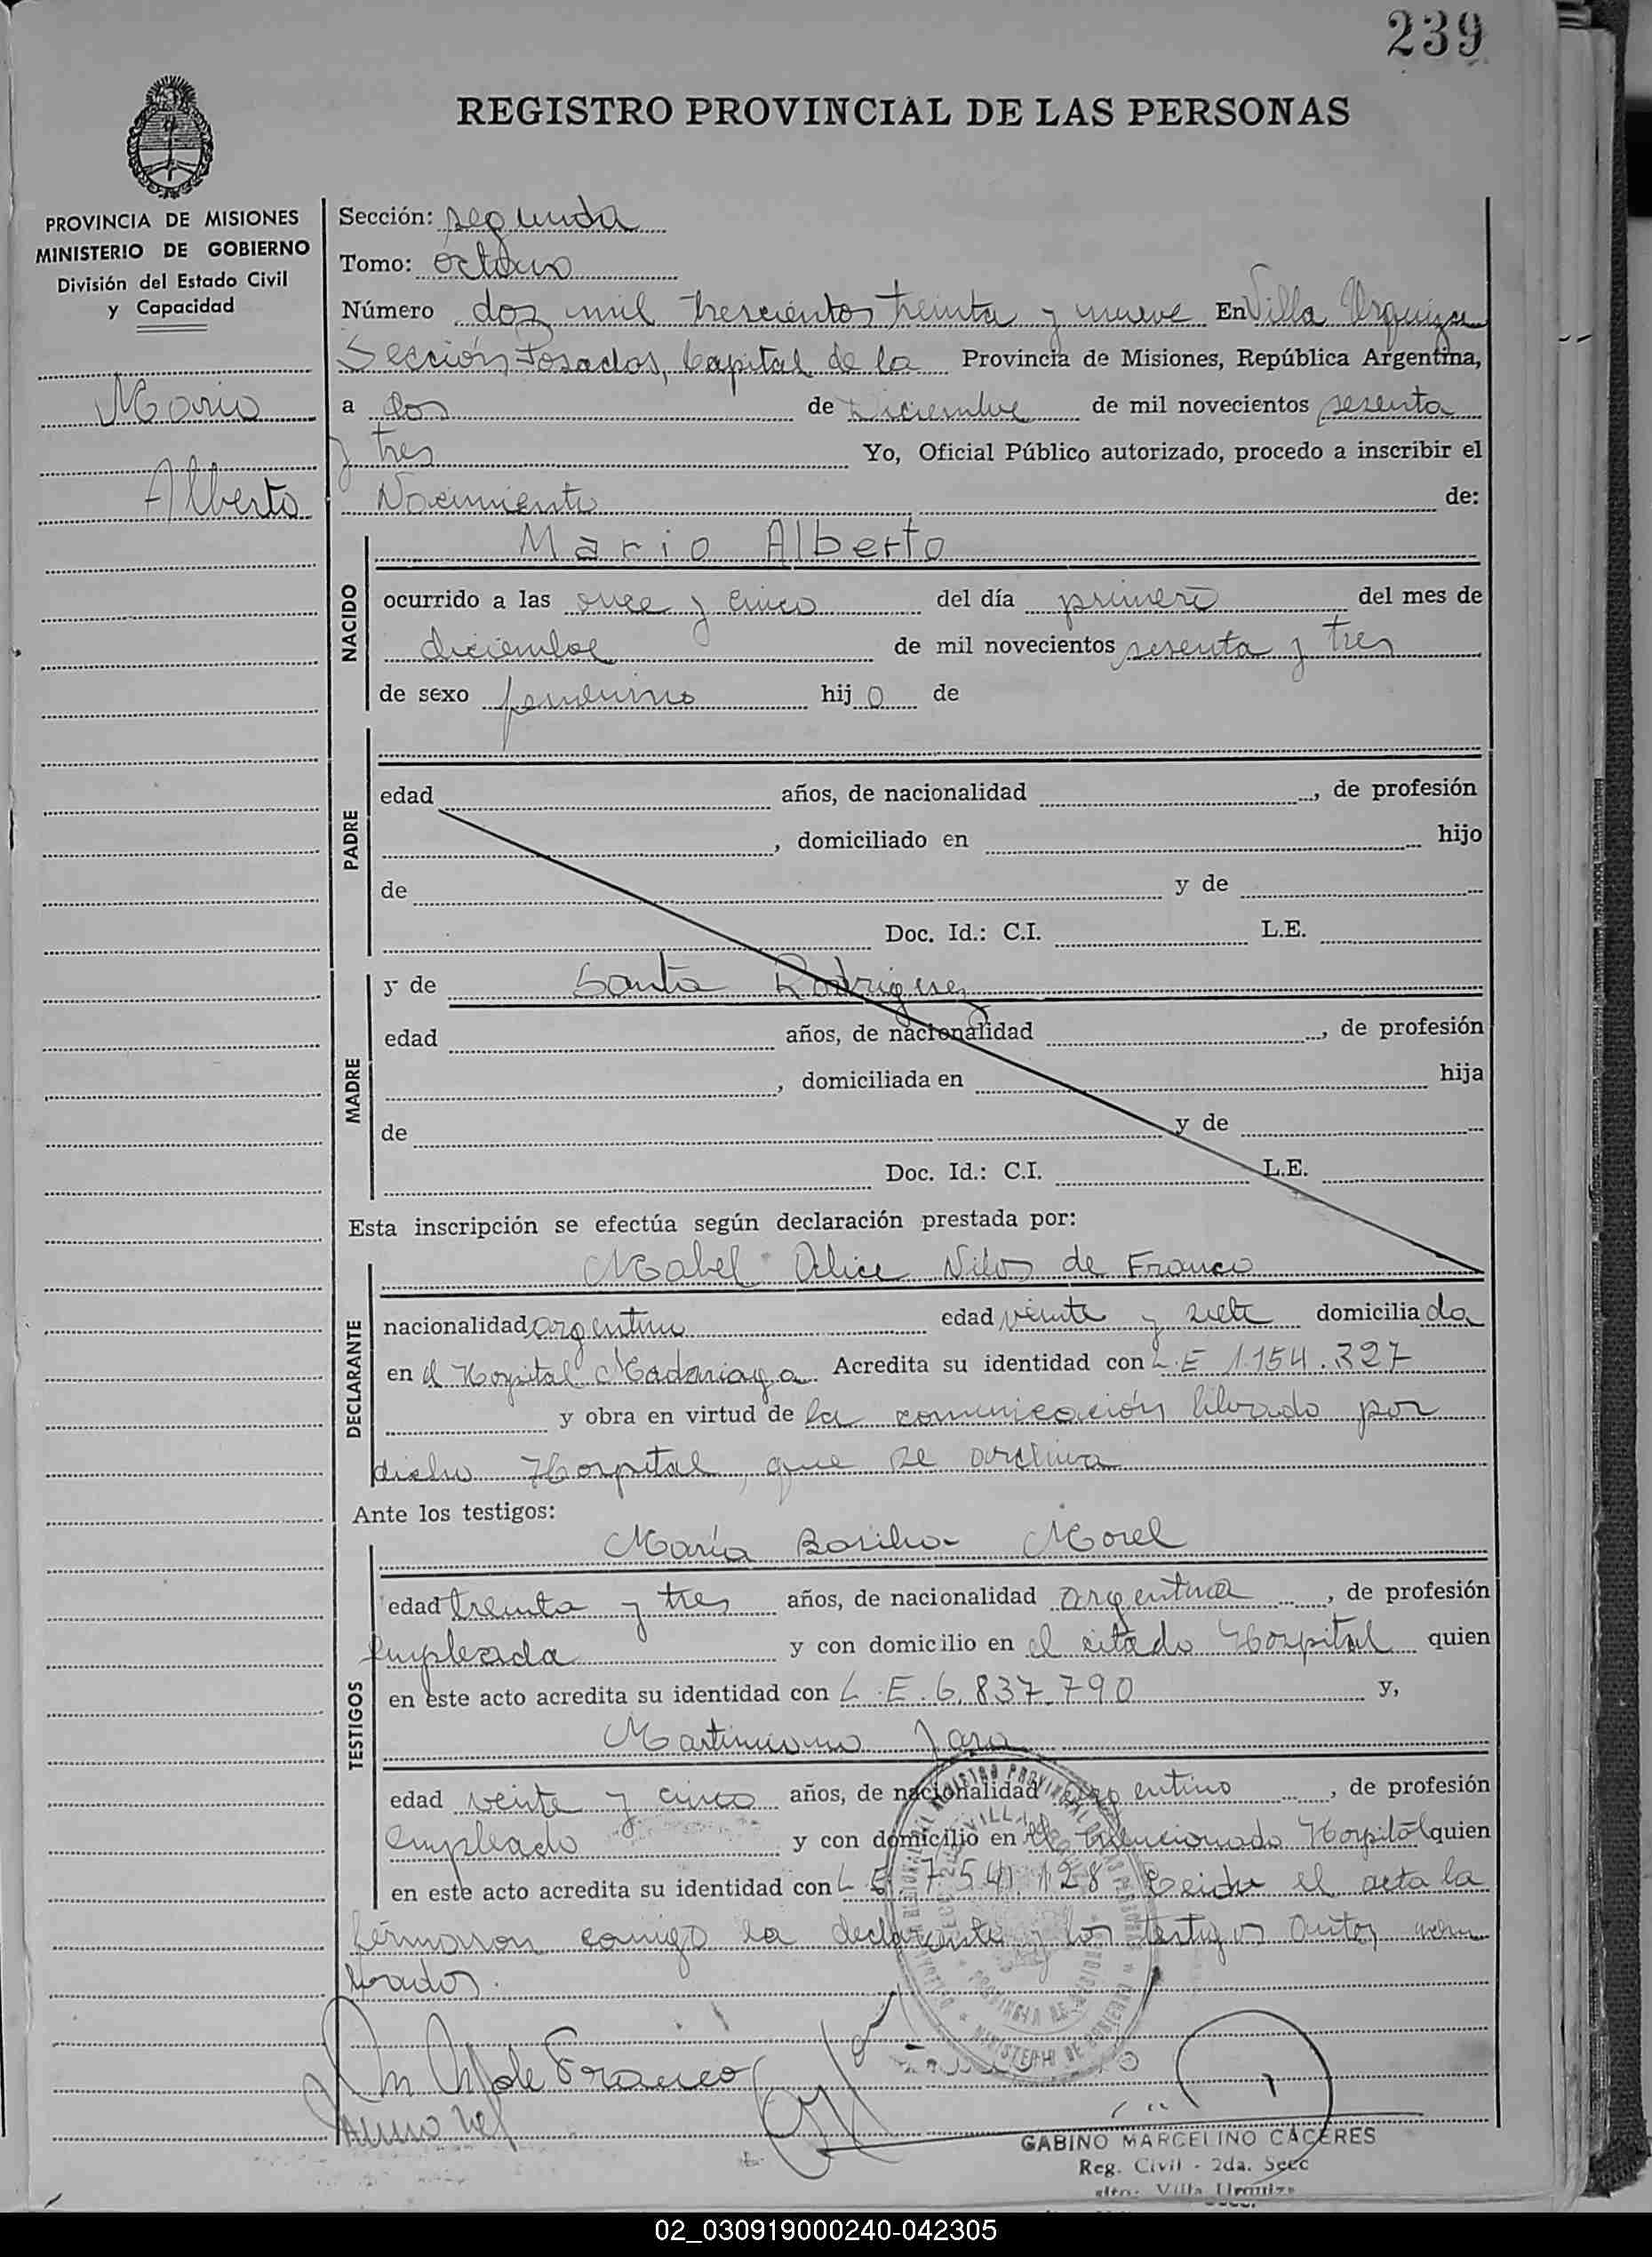 239
REGISTRO PROVINCIAL DE LAS PERSONAS
PROVINCIA DE MISIONES
MINISTERIO DE GOBIERNO
División del Estado Civil
y Capacidad
Mario
Alberto
Sección: segunda
Tomo: octavo
Número dos mil trescientos treinta y nueve En Villa Urquiza
Sección Posadas, Capital de la Provincia de Misiones, República Argentina,
a dos de Diciembre de mil novecientos sesenta
y tres Yo, Oficial Público autorizado, procedo a inscribir el
Nacimiento de:
NACIDO
Mario Alberto
ocurrido a las once y cinco del día primero del mes de
diciembre de mil novecientos sesenta y tres
de sexo femenino hijo de
PADRE
edad años, de nacionalidad , de profesión
, domiciliado en hijo
de y de
Doc. Id.: C.I. L.E.
MADRE
y de Santa Rodriguez
edad años, de nacionalidad , de profesión
, domiciliada en hija
de y de
Doc. Id.: C.I. L.E.
Esta inscripción se efectúa según declaración prestada por:
DECLARANTE
Mabel Alice de Franco
nacionalidad argentina edad veinte y siete domiciliada
en el Hospital Madariaga Acredita su identidad con L.E 1.154.327
y obra en virtud de la comunicación librado por
dicho Hospital, que se archiva
Ante los testigos:
TESTIGOS
María Basilia Morel
edad treinta y tres años, de nacionalidad argentina , de profesión
empleada y con domicilio en el citado Hospital quien
en este acto acredita su identidad con L.E.6.837.790 y,
Martiniano Jara
edad veinte y cinco años, de nacionalidad argentino , de profesión
empleado y con domicilio en el mencionado Hospital quien
en este acto acredita su identidad con L.E. 7.541.128 Leida el acta la
firmaron comigo la declarante y los testigos antes nom
brados.
de Franco
GABINO MARCELINO CACERES
Reg. Civil - 2da. Secc
Villa Urquiza
02_030919000240-042305